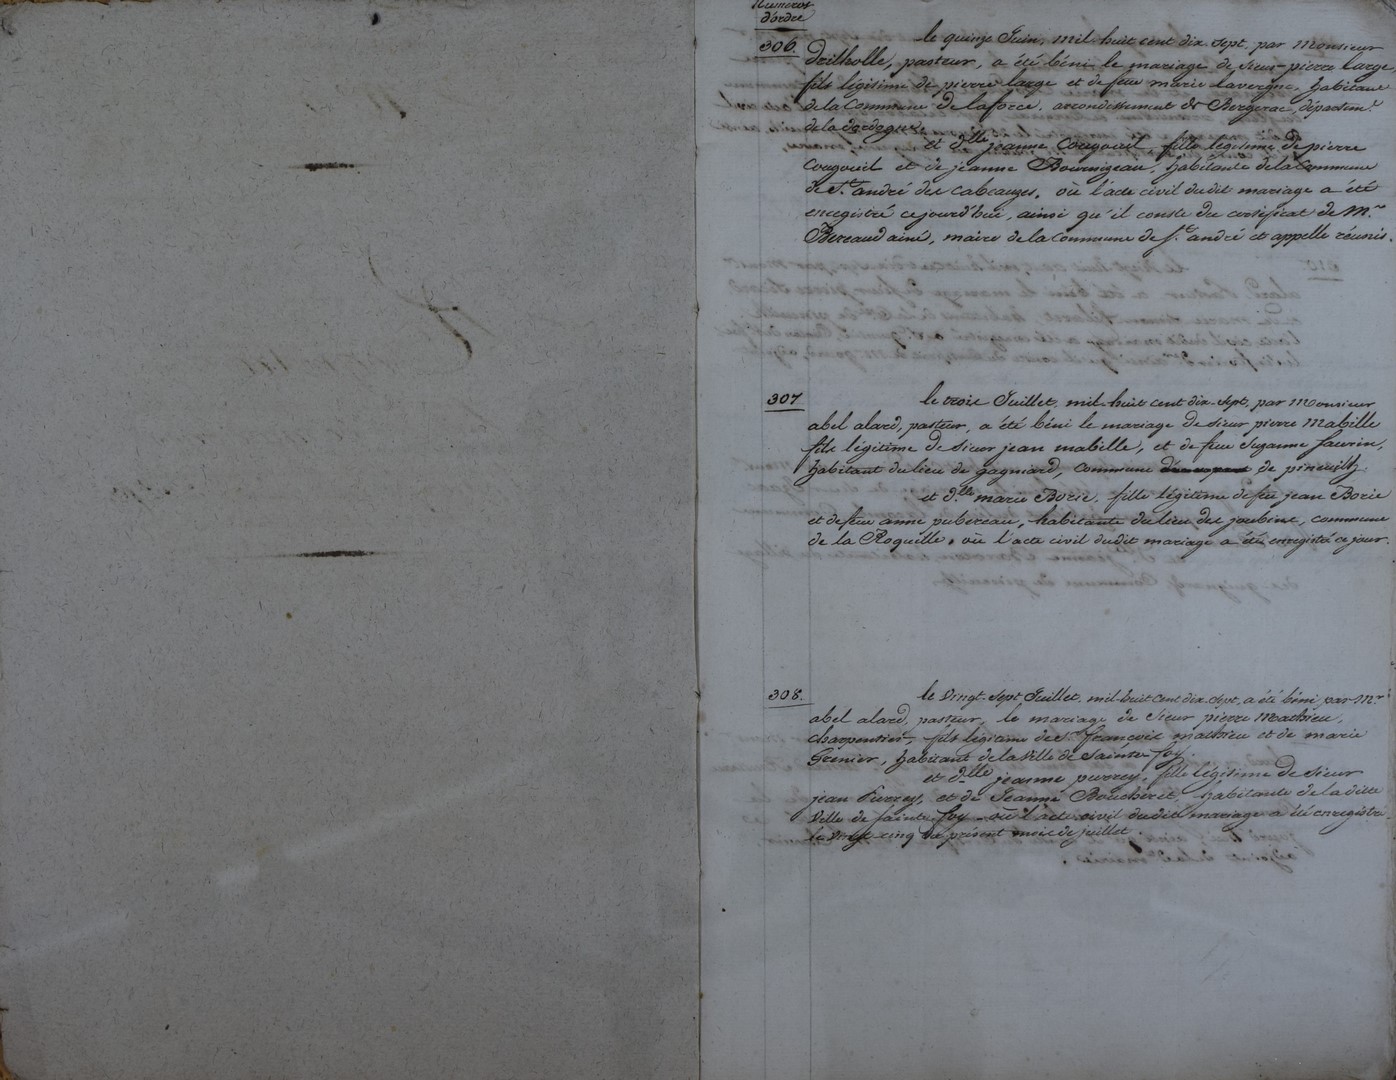 Numeros
d'ordre
306. le quinze Juin, mil huit cent dix sept, par Monsieur
Drilholle, pasteur, a été béni le mariage de sieur pierre large,
fils légitime de pierre large et de feue marie lavergne, habitant
de la Commune de laforce, arrondissement de Bergerac, départem.t
de la dordogne.
et d.lle jeanne Cougouil, fille légitime de pierre
Cougouil et de jeanne Bournizeau, habitante de la Commune
de S.t andré des Cabeauzes, où l'acte civil dudit mariage a été
enregistré ce jourd'hui, ainsi qu'il conste du certificat de M.r
Bereaud ainé, maire de la Commune de S.t andré et appelle réunis.
307 le trois Juillet, mil huit cent dix sept, par Monsieur
abel alard, pasteur, a été béni le mariage de sieur pierre Mabille
fils légitime de sieur jean mabille, et de feue Suzanne Saurin,
habitant du lieu de gagniard, commune de pineuilh.
et d.lle marie Borie, fille légitime de feu jean Borie
et de feue anne pubereau, habitante du lieu des joubins, commune
de la Roquille, où l'acte civil dudit mariage a été enregistré ce jour.
308. le vingt sept Juillet, mil huit cent dix sept, a été béni par M.r
abel alard, pasteur, le mariage de sieur pierre Mathieu,
charpentier, fils légitime de S.r françois mathieu et de marie
Grenier, habitant de la ville de Sainte foy.
et d.lle jeanne purrey, fille légitime de sieur
jean Purrey, et de Jeanne Boucherit, habitante de la ditte
ville de Sainte foy où l'acte civil dudit mariage a été enregistré
le vingt cinq du présent mois de juillet.